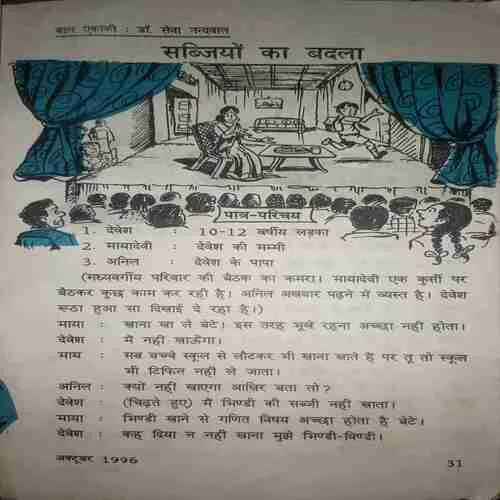 बाल एकांकी : डॉ. सेवा नन्दवाल
सब्जियों का बदला
पात्र-परिचय
1. देवेश : 10-12 वर्षीय लड़का
2. मायादेवी : देवेश की मम्मी
3. अनिल : देवेश के पापा
(मध्यवर्गीय परिवार की बैठक का कमरा। मायादेवी एक कुर्सी पर
बैठकर कुछ काम कर रही है। अनिल अखबार पढ़ने में व्यस्त है। देवेश
रूठा हुआ सा दिखाई दे रहा है।)
माया : खाना खा ले बेटे। इस तरह भूखे रहना अच्छा नहीं होता।
देवेश : मैं नहीं खाऊँगा।
माय : सब बच्चे स्कूल से लौटकर भी खाना खाते हैं पर तू तो स्कूल
भी टिफिन नहीं ले जाता।
अनिल : क्यों नहीं खाएगा आखिर बता तो?
देवेश : (चिढ़ते हुए) मैं भिण्डी की सब्जी नहीं खाता।
माया : भिण्डी खाने से गणित विषय अच्छा होता है बेटे।
देवेश : कह दिया न नहीं खाना मुझे भिण्डी-विण्डी।
अक्टूबर 1996 31